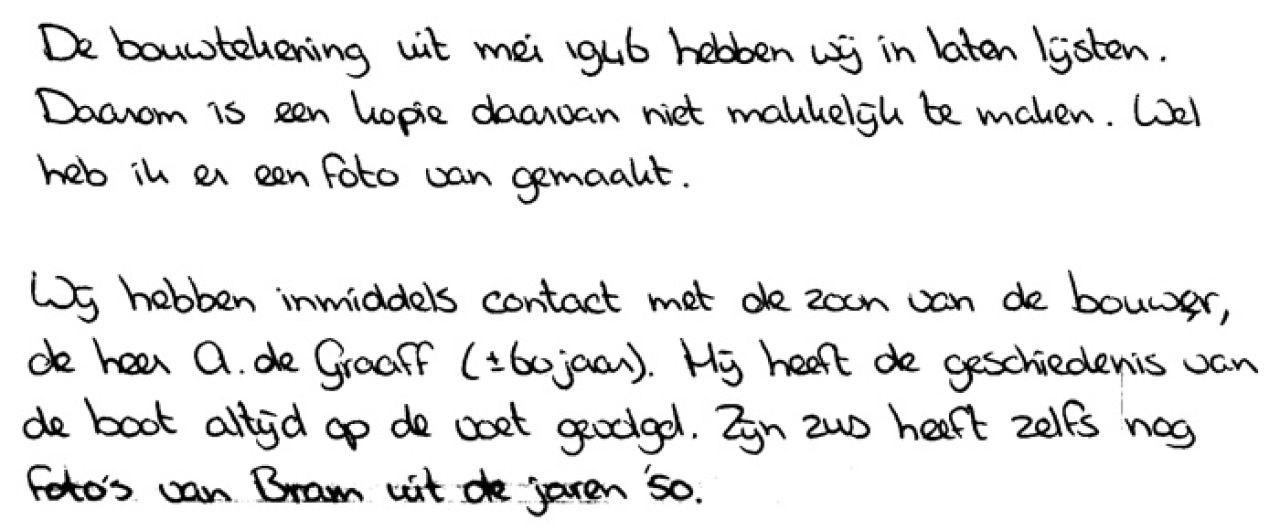 De bouwtekening uit mei 1946 hebben wij in laten lijsten.
Daarom is een kopie daarvan niet makkelijk te maken. Wel
heb ik er een foto van gemaakt.
Wij hebben inmiddels contact met de zoon van de bouwer,
de heer A. de Graaff (±60 jaar). Hij heeft de geschiedenis van
de boot altijd op de voet gevolgd. Zijn zus heeft zelfs nog
foto's van Bram uit de jaren '50.